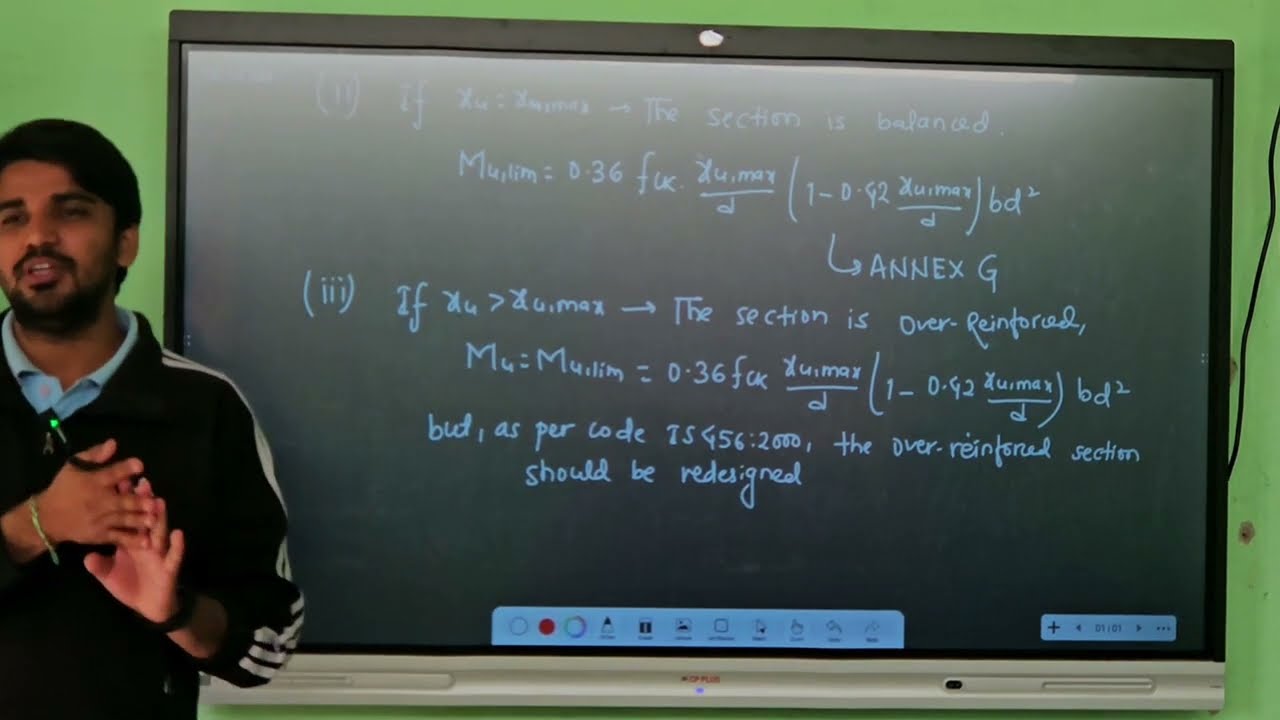 (ii) If xu = xu,max → The section is balanced.
Mu,lim = 0.36 fck. xu,max/d (1 - 0.42 xu,max/d) bd²
↳ ANNEX G
(iii) If xu > xu,max → The section is over-Reinforced,
Mu = Mu,lim = 0.36 fck xu,max/d (1 - 0.42 xu,max/d) bd²
but, as per code IS 456:2000, the over-reinforced section
should be redesigned
01|01
CP PLUS